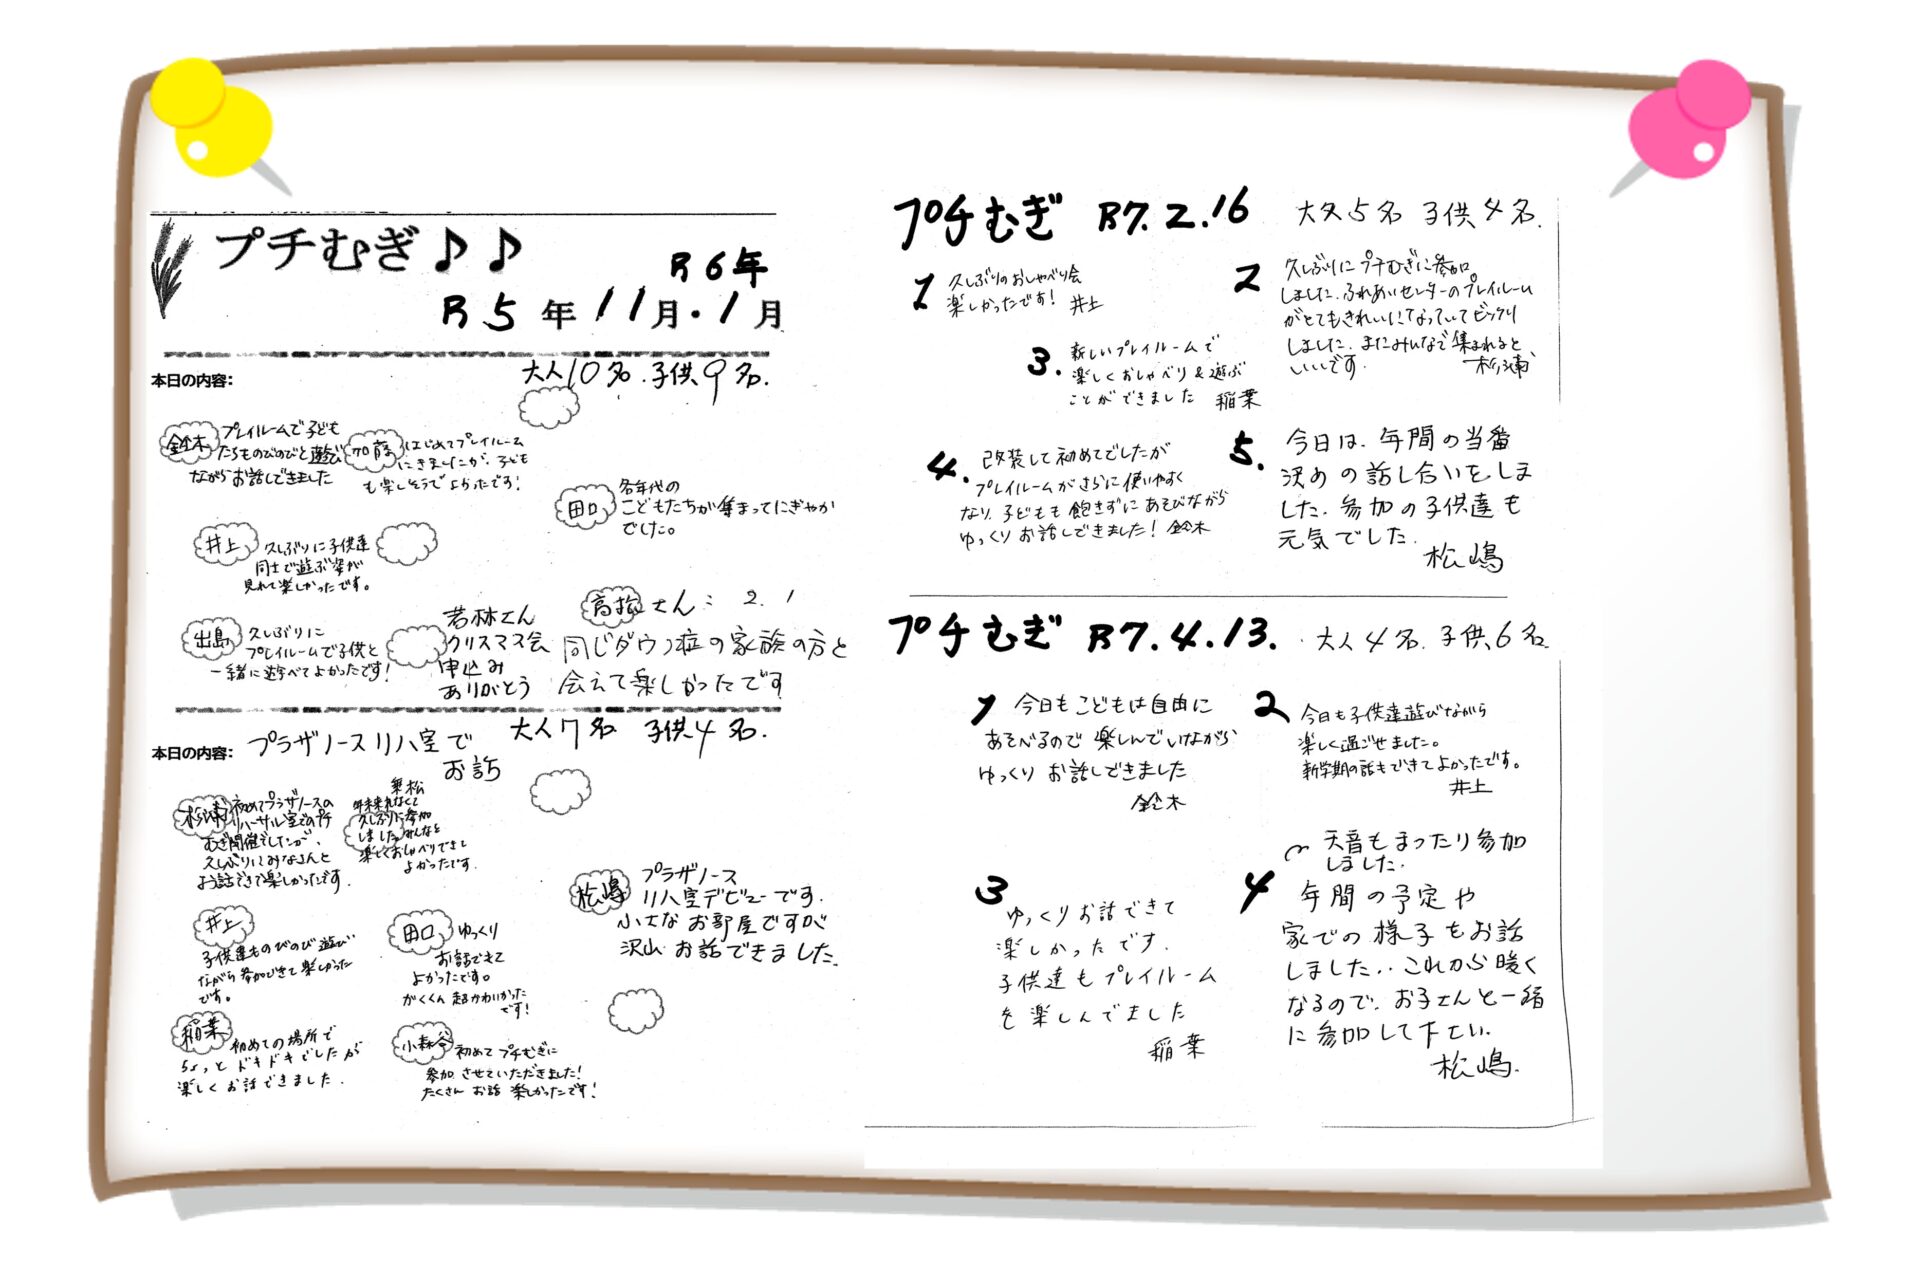 プチむぎ♪♪
R6年
R5年11月・1月
本日の内容:
大人10名.子供9名.
鈴木
プレイルームで子ども
たちものびのびと遊び
ながらお話しできました
加藤
はじめてプレイルーム
にきましたが、子ども
も楽しそうでよかったです!
田口
各年代の
こどもたちが集まってにぎやか
でした。
井上
久しぶりに子供達
同士で遊ぶ姿が
見れて楽しかったです。
出島
久しぶりに
プレイルームで子供と
一緒に遊べてよかったです!
若林さん
クリスマス会
申込み
ありがとう
高松さん:
同じダウン症の家族の方と
会えて楽しかったです
本日の内容:
プラザノースリハ室で
お話
大人7名 子供4名.
杉浦
初めてプラザノースの
リハーサル室でのプチ
むぎ開催でしたが、
久しぶりにみなさんと
お話できて楽しかったです.
年末来れなくて
久しぶりに参加
しました。みんなと
楽しくおしゃべりできて
よかったです.
松嶋
プラザノース
リハ室デビューです.
小さなお部屋ですが
沢山お話できました.
井上
子供達ものびのび遊び
ながら参加できて楽しかった
です。
田口
ゆっくり
お話できて
よかったです。
がくくん超かわいかった
です!
稲葉
初めての場所で
ちょっとドキドキでしたが
楽しくお話できました.
小森谷
初めてプチむぎに
参加させていただきました!
たくさんお話楽しかったです!
プチむぎ R7.2.16 大人5名 子供4名.
1 久しぶりのおしゃべり会
楽しかったです! 井上
2 久しぶりにプチむぎに参加
しました.ふれあいセンターのプレイルーム
がとてもきれいになっていてビックリ
しました.またみんなで集まれると
いいです. 杉浦
3. 新しいプレイルームで
楽しくおしゃべり&遊ぶ
ことができました 稲葉
4. 改装して初めてでしたが
プレイルームがさらに使いやすく
なり、子どもも飽きずにあそびながら
ゆっくりお話しできました! 鈴木
5. 今日は、年間の当番
決めの話し合いをしま
した.参加の子供達も
元気でした.
松嶋
プチむぎ R7.4.13. 大人4名.子供6名.
1 今日もこどもは自由に
あそべるので楽しんでいながら
ゆっくりお話しできました
鈴木
2 今日も子供達遊びながら
楽しく過ごせました。
新学期の話もできてよかったです。
井上
3 ゆっくりお話できて
楽しかったです.
子供達もプレイルーム
を楽しんでました
稲葉
天音もまったり参加
しました.
4 年間の予定や
家での様子をお話
しました..これから暖く
なるので、お子さんと一緒
に参加して下さい.
松嶋.